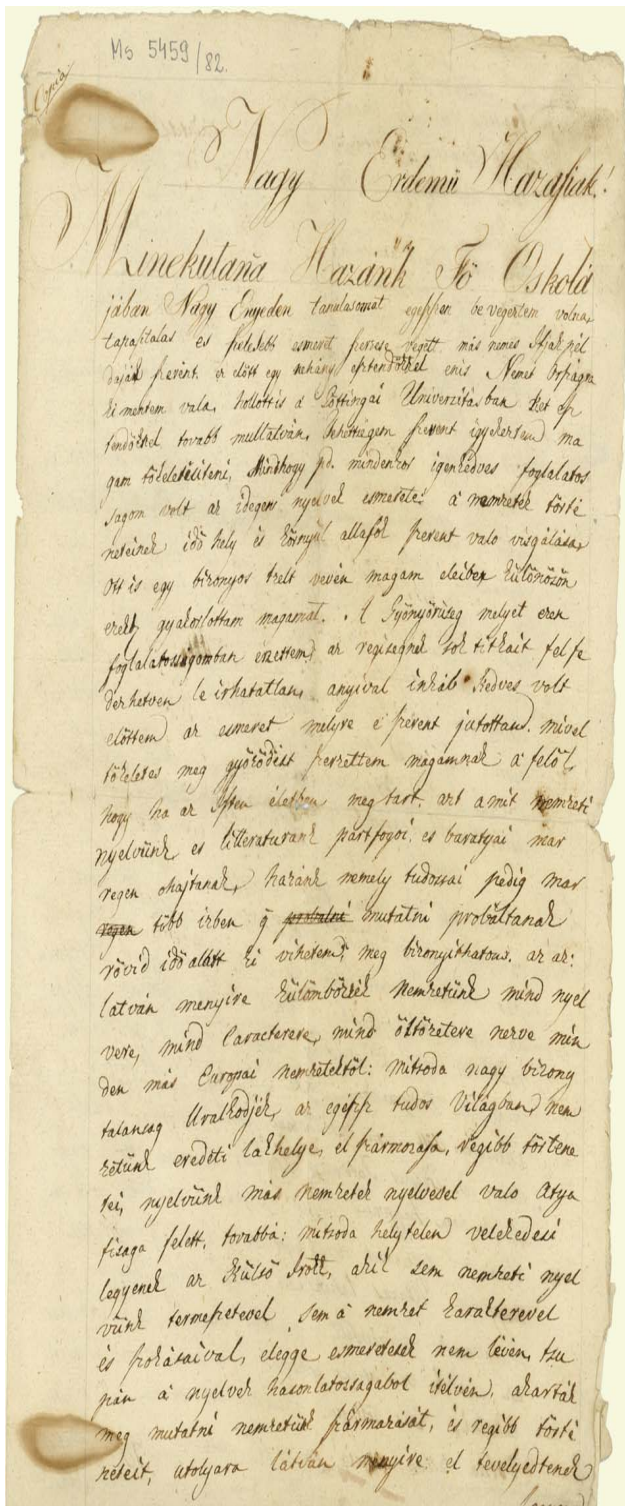 Ms 5459/82.
Copia
Nagy Erdemü Hazafiak!
Minekutana Hazánk Fö Oskolá
jában Nagy Enyeden tanulasomat egeszszen bevegeztem volna,
tapasztalas es szelesebb esmeret szerzese vegett más nemes Ifjak pél
dajak szerént ez elött egy nehány esztendökkel enis Nemes Országra
ki mentem vala, hollottis a Göttingai Univerzitásban két esz
tendökkel tovabb mulatván, tehettsegem szerent igyekeztem ma
gam tökeletesiteni, Minthogy pd. mindenkor igen kedves foglalatos
sagom volt az idegen nyelvek esmerete: a nemzetek törté
neteinek idö hely és környül allasok szerent valo visgálása,
ott is egy bizonyos tzelt vevén magam eleiben különözön
ezekb gyakorlottam magamat. A Gyönyörüseg melyet ezen
foglalatosságomban éreztem, az regisegnek sok titkait felfe
dezhetven le irhatatlan, anyival inkáb kedves volt
elöttem az esmeret melyre e szerent jutottam, mivel
tökeletes meg gyözödést szerzettem magamnak a felöl,
hogy ha az Isten életben meg tart, azt amit nemzeti
nyelvünk es litteraturank pártfogoi, es baratyai mar
regen ohajtanak, hazánk nemely tudossai pedig mar
regen több izben is probalni mutatni probáltanak
rövid idö alatt ki vihetem, s meg bizonyithatom. az az:
látván menyire külömbözzék Nemzetünk mind nyel
vere, mind Caracterere, mind öltözetere nezve min
den más Europai nemzetektöl: mitsoda nagy bizony
talansag Uralkodjék az egész tudos Világban nem
zetünk eredeti lakhelye, el szármozasa, régibb történe
tei, nyelvünk más nemzetek nyelvesel valo Atya
fisaga felett, tovabbá: mitsoda helytelen velekedesi
legyenek az Külsö Irokk, akik sem nemzeti nyel
vünk termeszetevel sem a nemzet karakterevel
és szokásaival, elegge esmeretesek nem lévén, tsu
pán a nyelvek hasonlatossagabol itélvén, akarták
meg mutatni nemzetünk származását, és regibb törté
neteit, utolyara látván menyire el tevelyedtenek